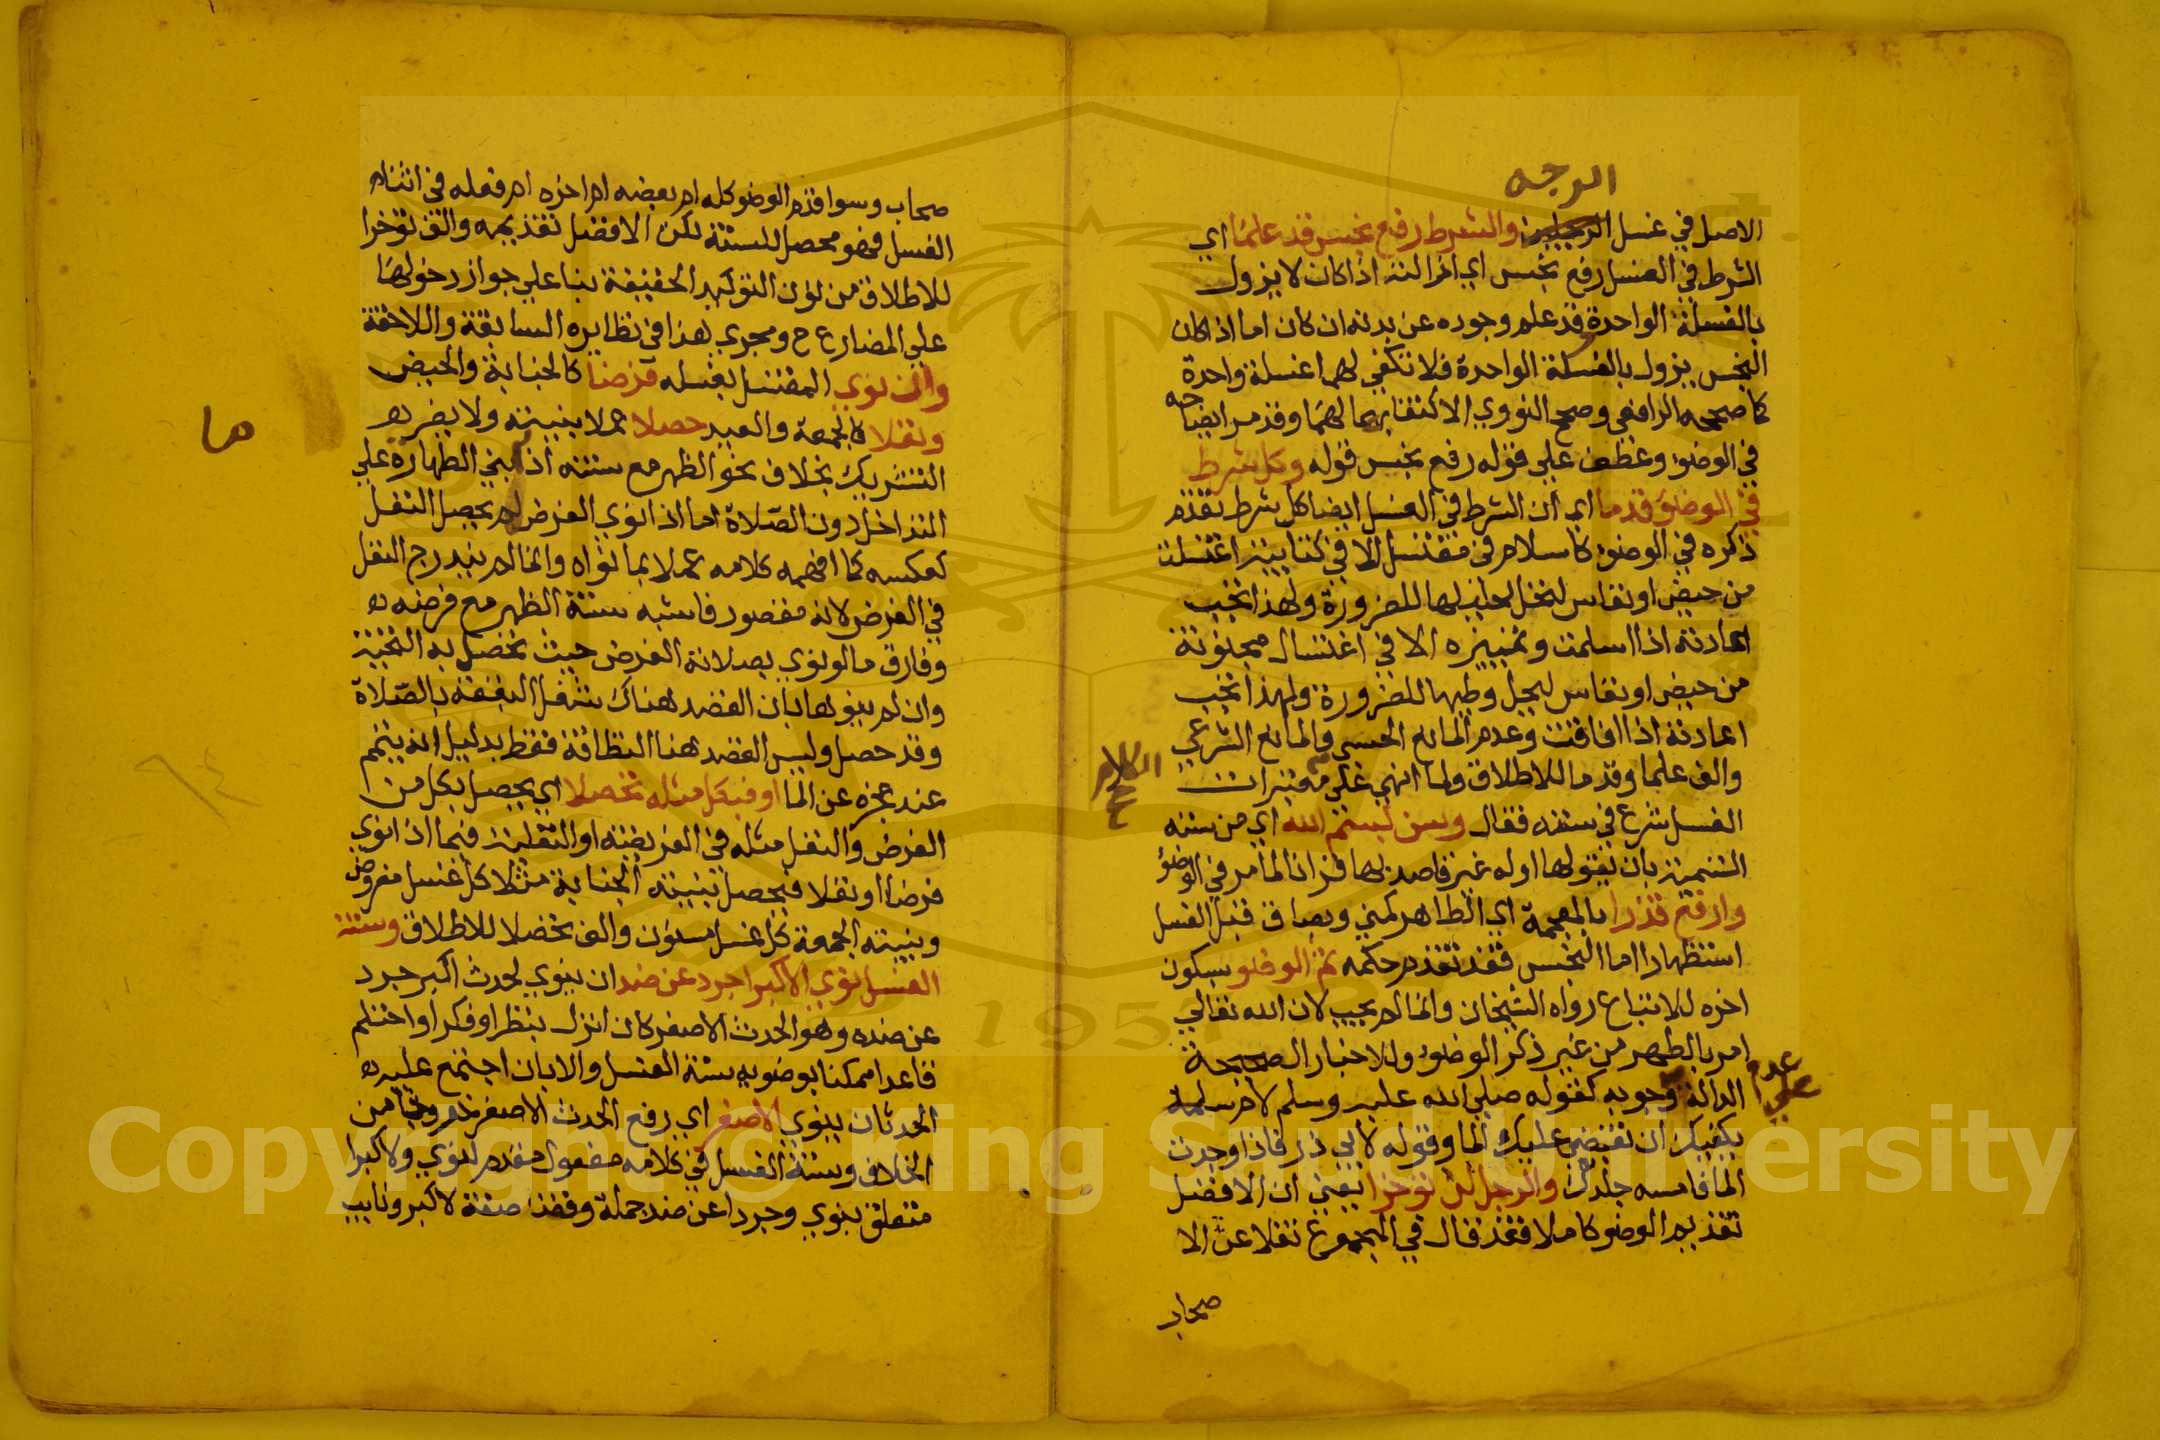 الوجه
الاصل في غسل الرجلين والشرط رفع نجس قد علما اي
الشرط في الغسل رفع نجس اي ازالته اذا كان لا يزول
بالغسلة الواحدة قد علم وجوده عن بدنه ان كان اما اذا كان
النجس يزول بالغسلة الواحدة فلا تكفي لهما غسلة واحدة
كما صححه الرافعي وصحح النووي الاكتفا بهما لهما وقد مر ايضاحه
في الوضوء وعطف علي قوله رفع نجس قوله وكل شرط
في الوضوء قدما اي ان الشرط في الغسل ايضا كل شرط تقدم
ذكره في الوضوء كاسلام في مغتسل الا في كتابية اغتسلت
من حيض او نفاس لتحل لحليلها للضرورة ولهذا تجب
اعادته اذا اسلمت وتمييزه الا في اغتسال مجنونة
من حيض او نفاس ليحل وطيها للضرورة ولهذا تجب
اعادته اذا افاقت وعدم المانع الحسي والمانع الشرعي
والف علما وقدما للاطلاق ولما انهي الكلام علي معتبرات
الغسل شرع في سننه فقال وسن لبسم الله اي من سننه
التسمية بان يقولها اوله غير قاصد بها قرانا لما مر في الوضوء
وارفع قذرا بالمعجمة اي الطاهر كمني وبصاق قبل الغسل
استظهارا اما النجس فقد تقدم حكمه ثم الوضو بسكون
اخره للاتباع رواه الشيخان وانما لم يجب لان الله تعالي
امر بالطهر من غير ذكر الوضوء وللاخبار الصحيحة
الدالة علي عدم وجوبه كقوله صلي الله عليه وسلم لام سلمة
يكفيك ان تفيضي عليك الما وقوله لابي ذر فاذا وجدت
الما فامسه جلدك والرجل لن تؤخرا يعني ان الافضل
تقديم الوضو كاملا فقد قال في المجموع نقلا عن الا
صحاب
صحاب وسوا قدم الوضو كله ام بعضه ام اخره ام فعله في اثناء
الغسل فهو محصل للسنة لكن الافضل تقديمه والف تؤخرا
للاطلاق من نون التوكيد الخفيفة بنا علي جواز دخولها
علي المضارع ح ويجري هذا في نظايره السابقة واللاحقة
وان نوي المغتسل بغسله فرضا كالجنابة والحيض
ونفلا كالجمعة والعيد حصلا عملا بنيته ولا يضره
التشريك بخلاف نحو الظهر مع سنته اذ مبني الطهارة علي
التداخل دون الصلاة اما اذا نوي الفرض لم يحصل النفل
كعكسه كما افهمه كلامه عملا بما نواه وانما لم يندرج النفل
في الفرض لانه مقصود فاشبه سنة الظهر مع فرضه
وفارق ما لو نوي بصلاته الفرض حيث تحصل به التحية
وان لم ينوها بان القصد هناك شغل البقعة بالصلاة
وقد حصل وليس القصد هنا النظافة فقط بدليل انه يتيمم
عند عجزه عن الما او فبكل مثله تحصلا اي يحصل بكل من
الفرض والنفل مثله في الفريضة او النفلية فيما اذا نوي
فرضا او نفلا فيحصل بنيته الجنابة مثلا كل غسل مفروض
وبنيته الجمعة كل غسل مسنون والف تحصلا للاطلاق وسنة
الغسل نوي الاكبرا جرد عن ضد ان ينوي لحدث اكبر جرد
عن ضده وهو الحدث الاصغر كان انزل بنظر او فكر او احتلم
قاعدا ممكنا بوضويه سنة الغسل والا بان اجتمع عليه
الحدثان ينوي الاصغر اي رفع الحدث الاصغر خروجا من
الخلاف وسنة الغسل في كلامه مفعول مقدم لنوي ولاكبرا
متعلق بنوي وجردا عن ضد جملة وقعت صفة لاكبر ونايب